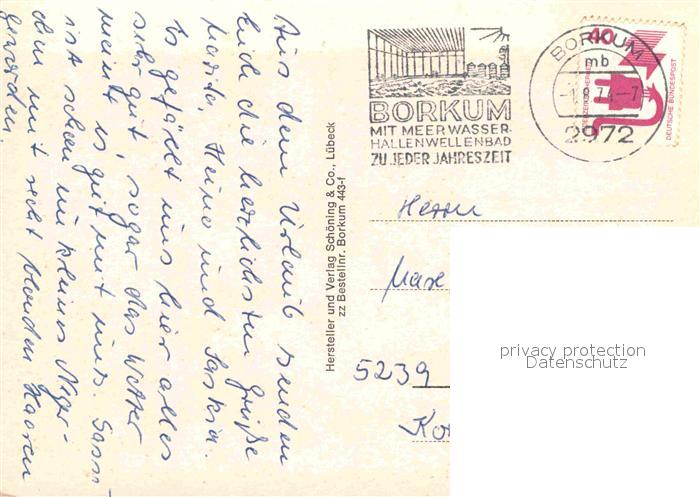 Aus dem Urlaub senden
Euch die herzlichsten Grüße
Marita, Heino und Saskia.
Es gefällt uns hier alles
sehr gut, sogar das Wetter
meint es gut mit uns. Sass-
ist schon ein kleines Neger-
chen mit recht blonden Haaren
geworden.
Hersteller und Verlag Schöning & Co., Lübeck
zz Bestellnr. Borkum 443-f
BORKUM
MIT MEERWASSER-
HALLENWELLENBAD
ZU JEDER JAHRESZEIT
BORKUM
mb
-1.8.74-7
2972
40
DEUTSCHE BUNDESPOST
Herrn
5239
privacy protection
Datenschutz